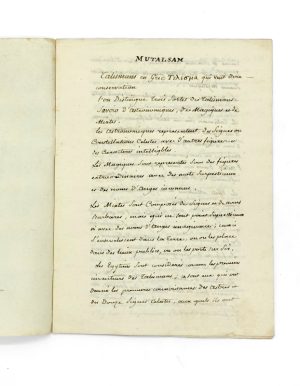 MUTALSAM
Talismans en Grec Τελεσμα qui veut dire
conservation
l'on Distingue trois Sortes de Talismans
Savoir d'astronomiques, des Magiques et de
Mixtes.
les astronomiques representent des Signes ou
Constellations Celestes avec d'autres figures et
des Caracteres intelligibles
Les Magiques sont representés sous des figures
extraordinaires avec des mots Superstitieux
et des noms d'anges inconnus
Les Mixtes sont Composés de Signes et de noms
Barbares, mais qui ne sont point Superstitieux
ni avec des noms d'anges
s'ensevelissent dans la terre, on on les place
dans des lieux publics, ou on les porte sur soi,
les Egyptiens sont considerés comme les premiers
inventeurs des Talismans, ce sont eux qui ont
donné les premieres connaissances des astres et
des Douze Signes Celestes, aux quels ils ont